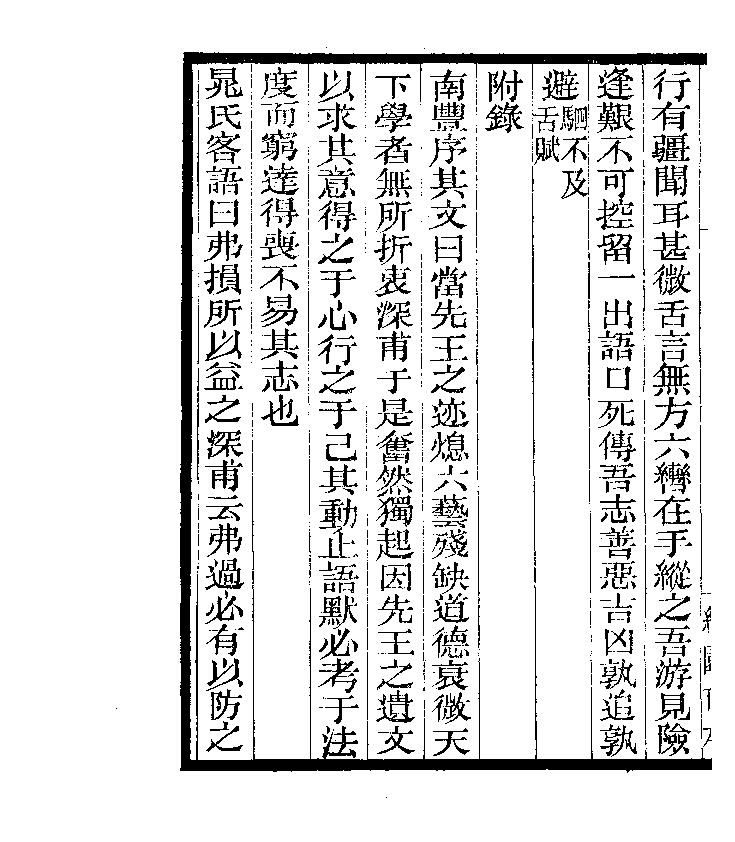 行有疆聞耳甚微舌言無方六轡在手縱之吾游見險
逢艱不可控留一出語口死傳吾志善惡吉凶孰追孰
避駟不及
舌賦
附錄
南豐序其文曰當先王之迹熄六藝殘缺道德衰微天
下學者無所折衷深甫于是奮然獨起因先王之遺文
以求其意得之于心行之于己其動止語默必考于法
度而窮達得喪不易其志也
晁氏客語曰弗損所以益之深甫云弗過必有以防之